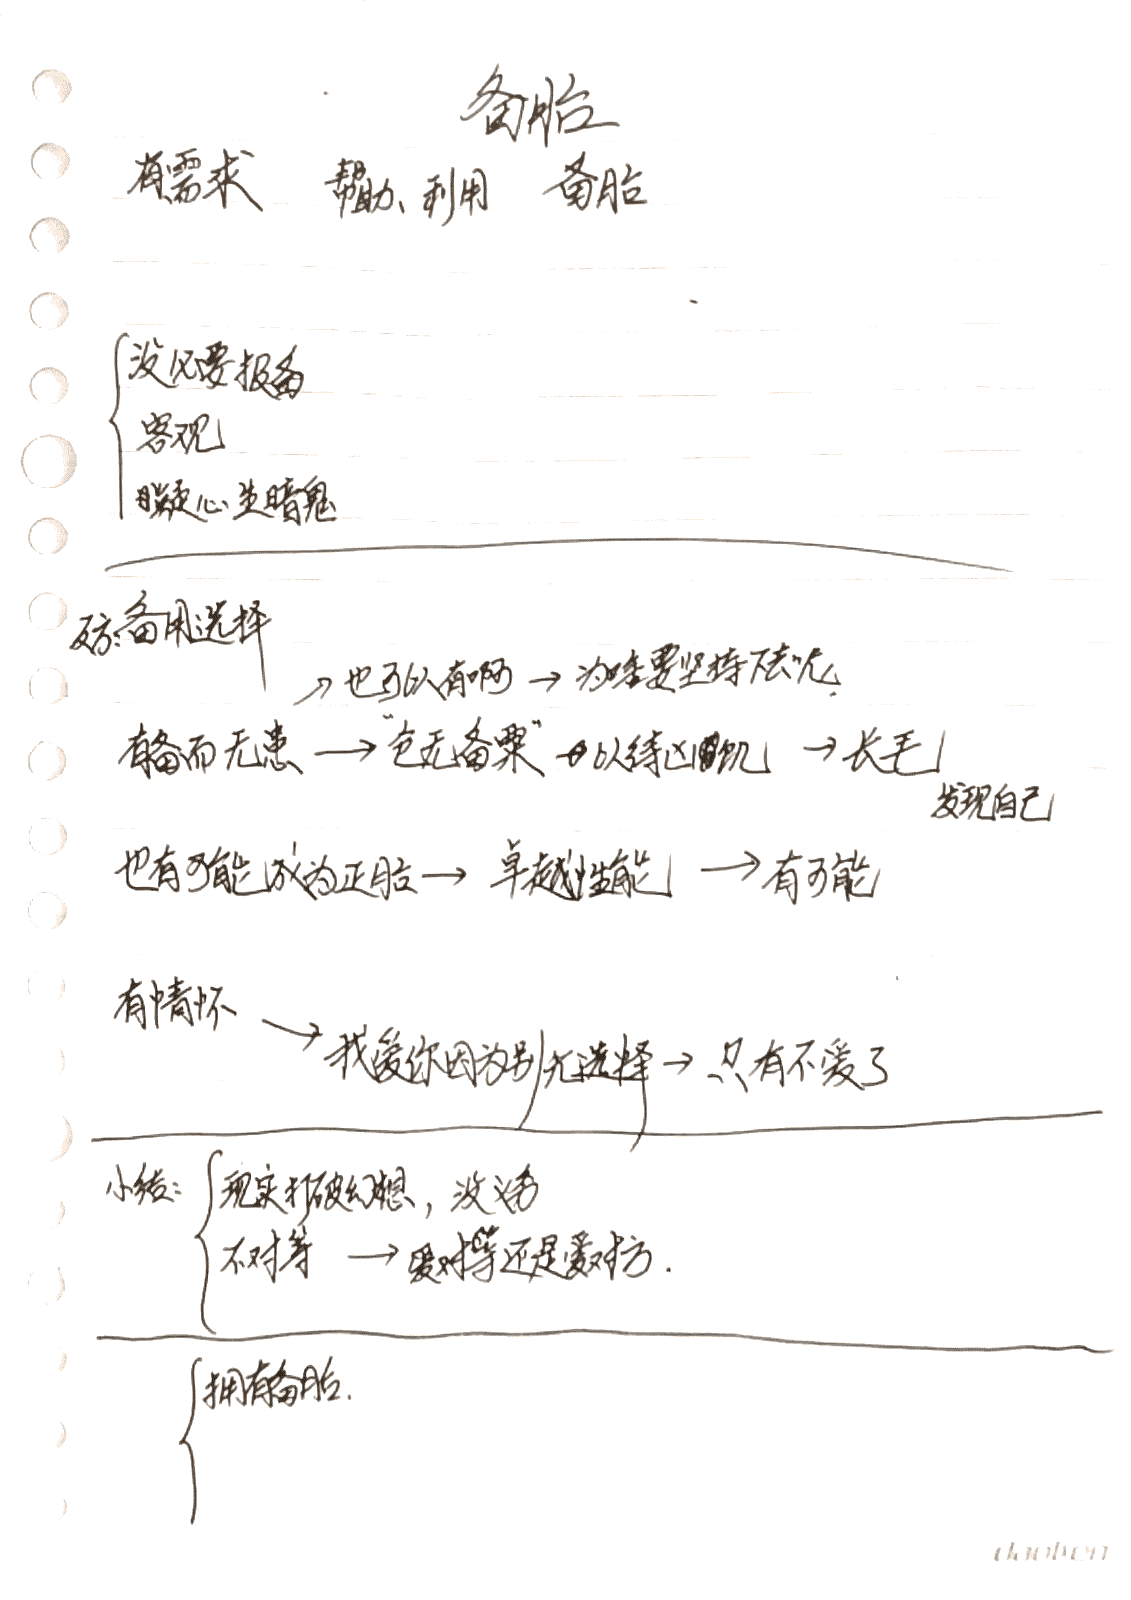 备胎
有需求 帮助、利用 备胎
没必要报备
客观
疑心生暗鬼
反方:备用选择
→也可以有啊→为啥要坚持下去呢
有备而无患→"仓无备粟"→以待凶饥→长毛
发现自己
也有可能成为正胎→卓越性能→有可能
有情怀
→我爱你因为别无选择→只有不爱了
小结:现实打破幻想,没义务
不对等→爱对等还是爱对方.
拥有备胎.